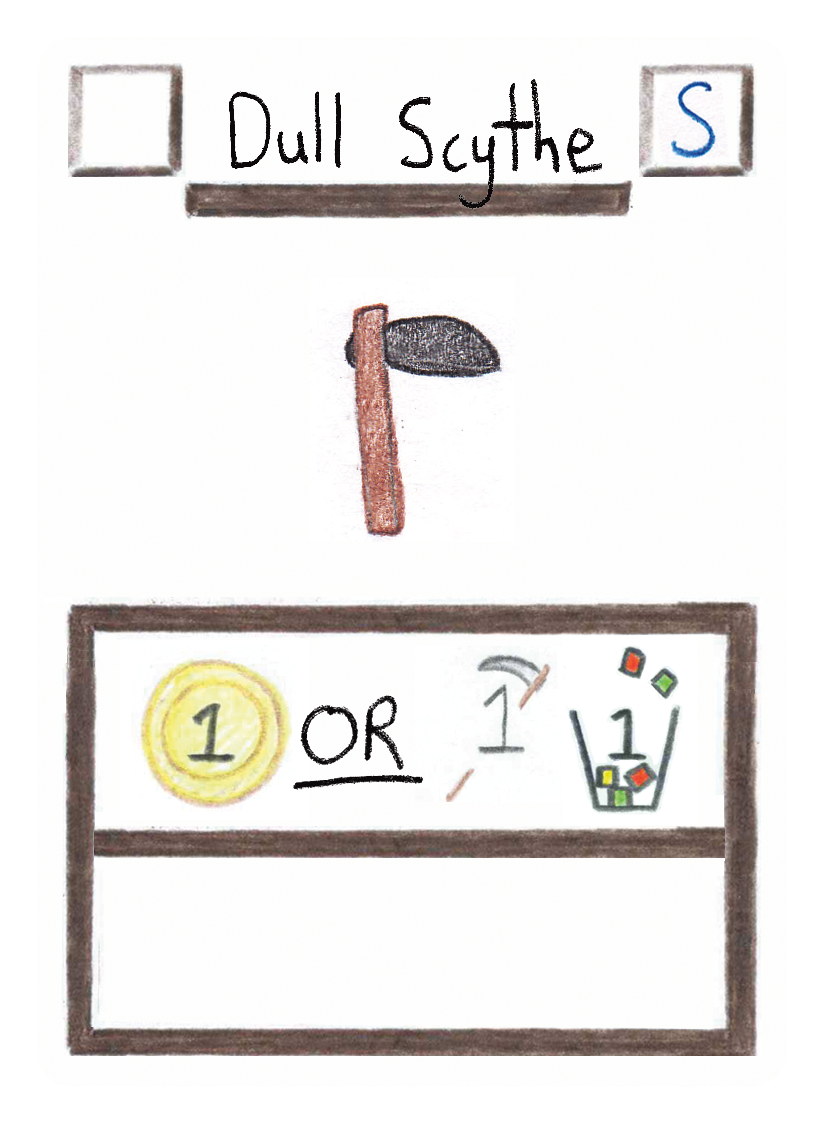 Dull Scythe S
1 OR 1 1